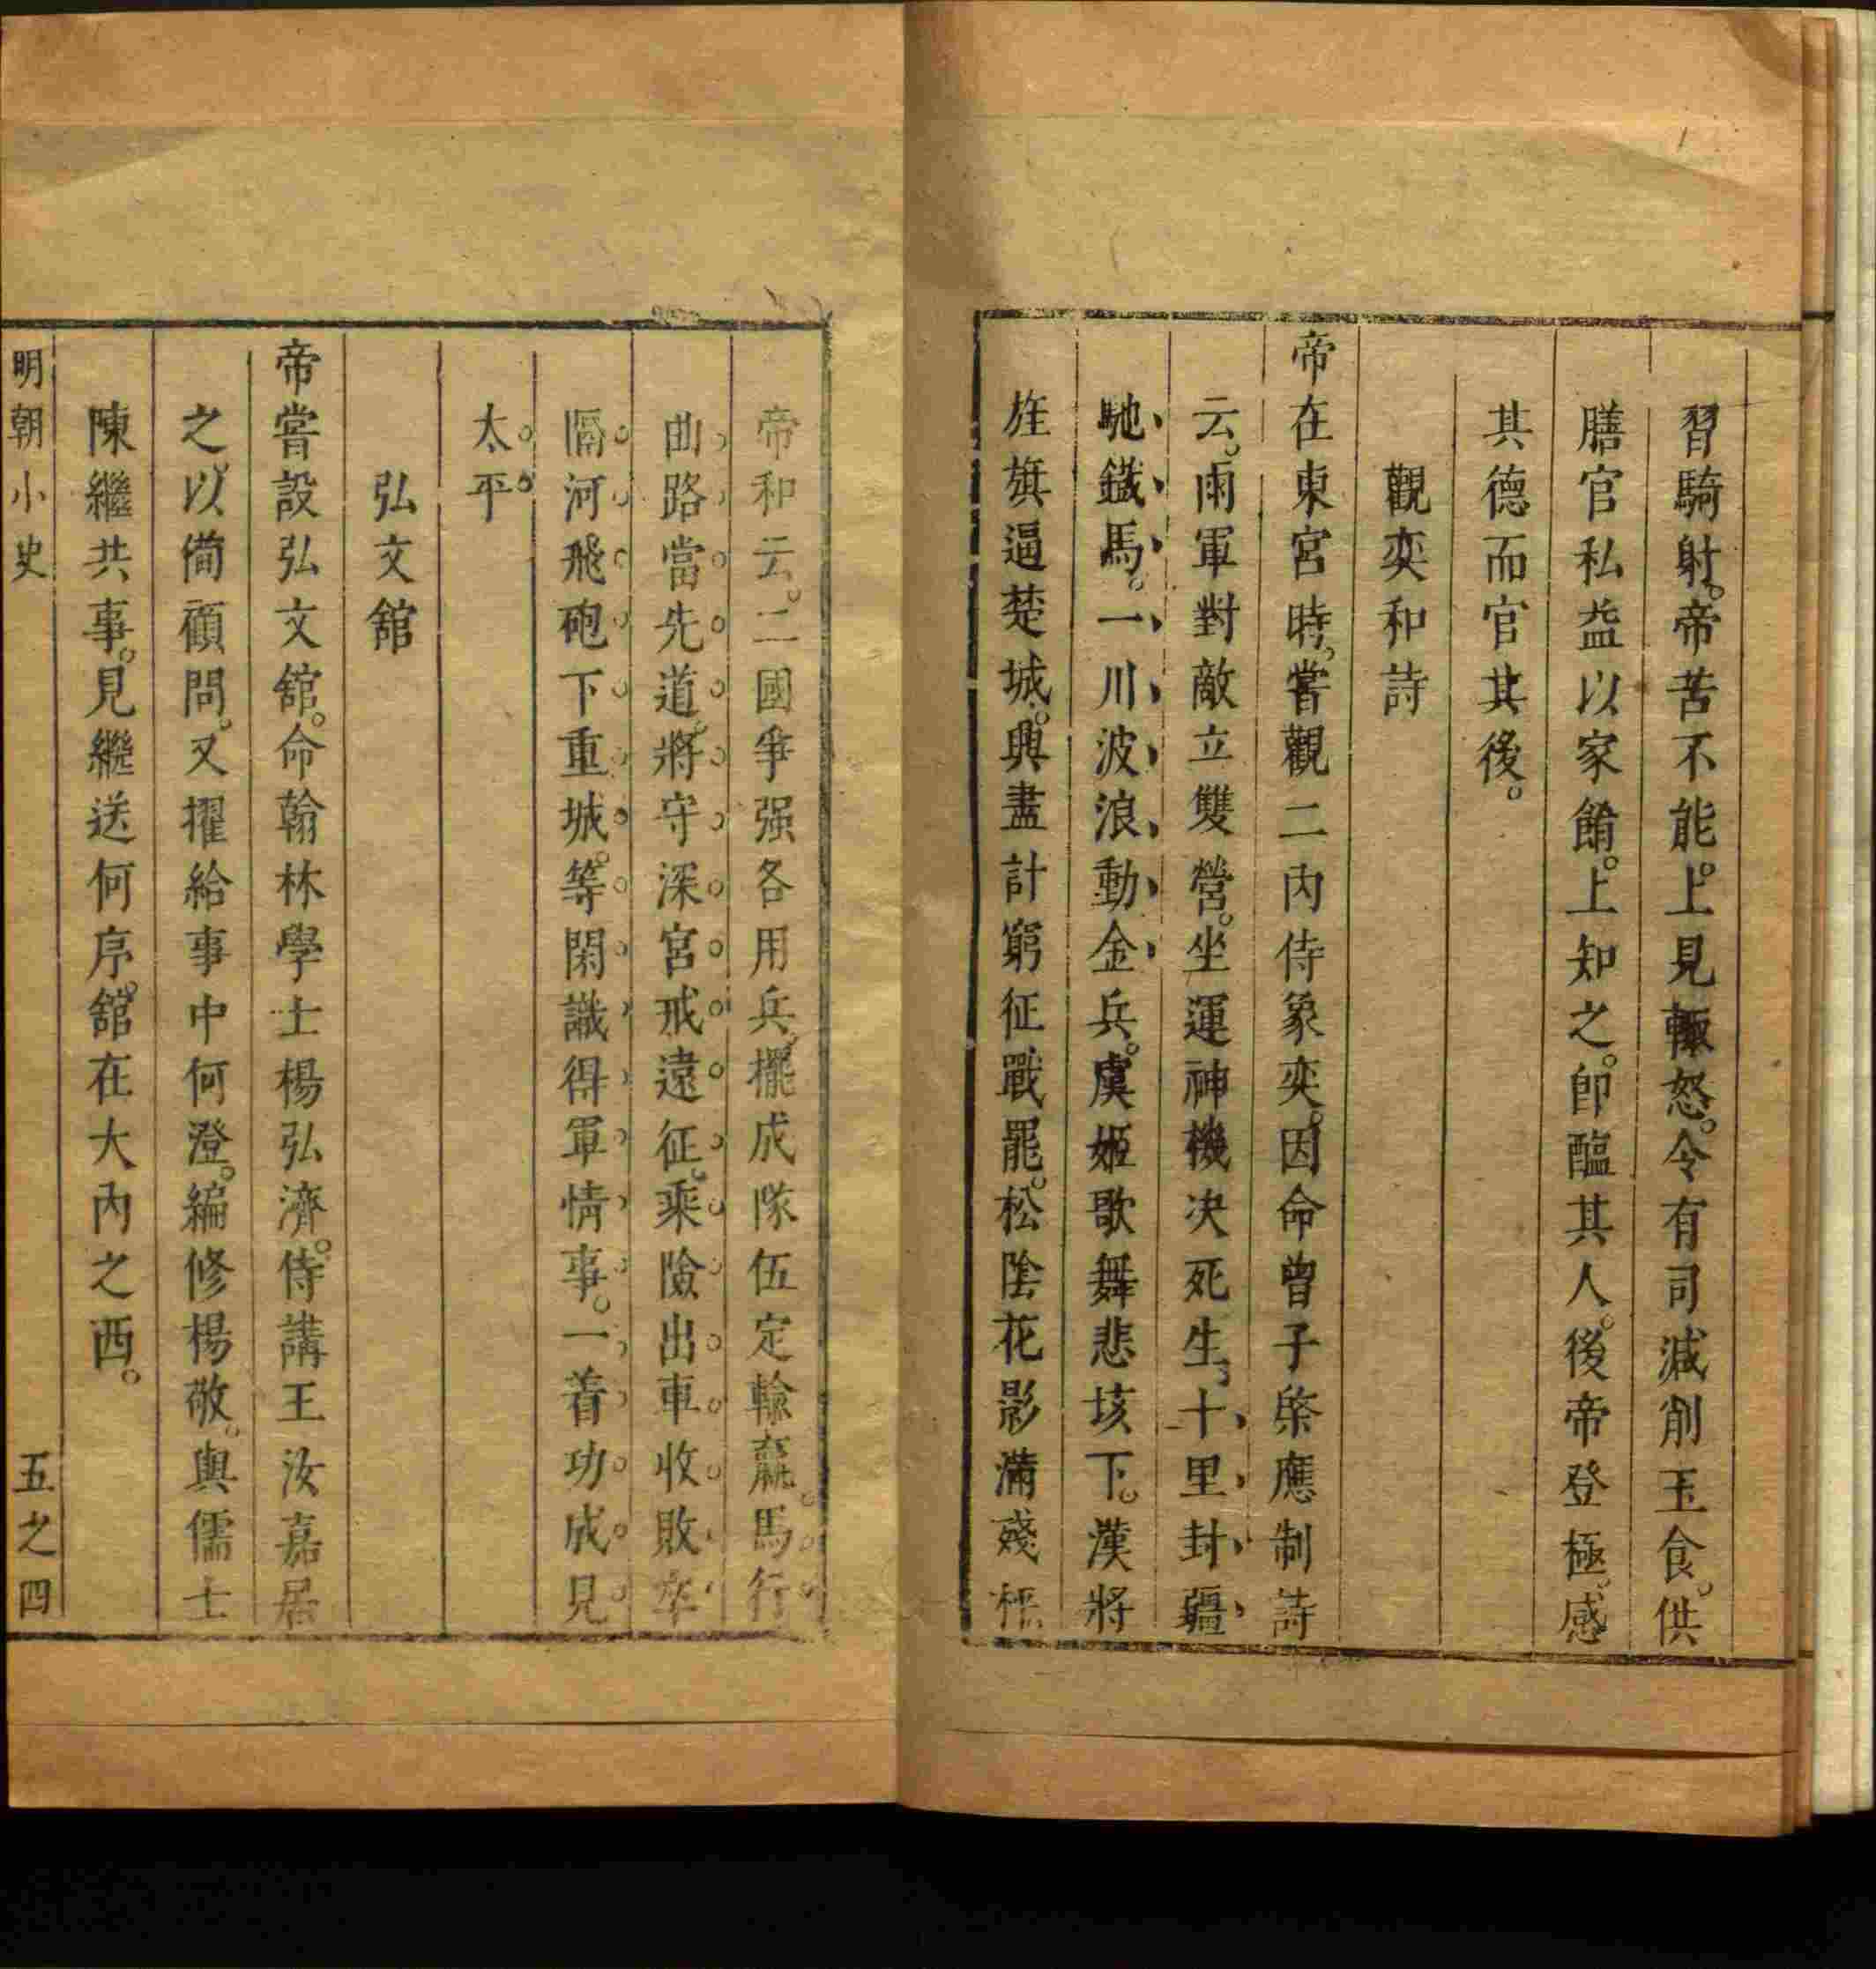 習騎射。帝苦不能。上見輙怒。令有司減削玉食。供
膳官私益以家餚。上知之。卽醢其人。後帝登極。感
其德而官其後。
觀奕和詩
帝在東宮時。嘗觀二內侍象奕。因命曾子棨應制詩
云。兩軍對敵立雙營。坐運神機决死生。十里封疆
馳鐵馬。一川波浪動金兵。虞姬歌舞悲垓下。漢將
旌旗逼楚城。興盡計窮征戰罷。松陰花影滿殘枰
帝和云。二國爭强各用兵。擺成隊伍定輸贏。馬行
曲路當先道。將守深宮戒遠征。乘險出車收敗卒
隔河飛砲下重城。等閑識得軍情事。一着功成見
太平。
弘文舘
帝嘗設弘文舘。命翰林學士楊弘濟。侍講王汝嘉居
之。以俻顧問。又擢給事中何澄。編修楊敬。與儒士
陳繼共事。見繼送何序。舘在大內之西。
明朝小史 五之四